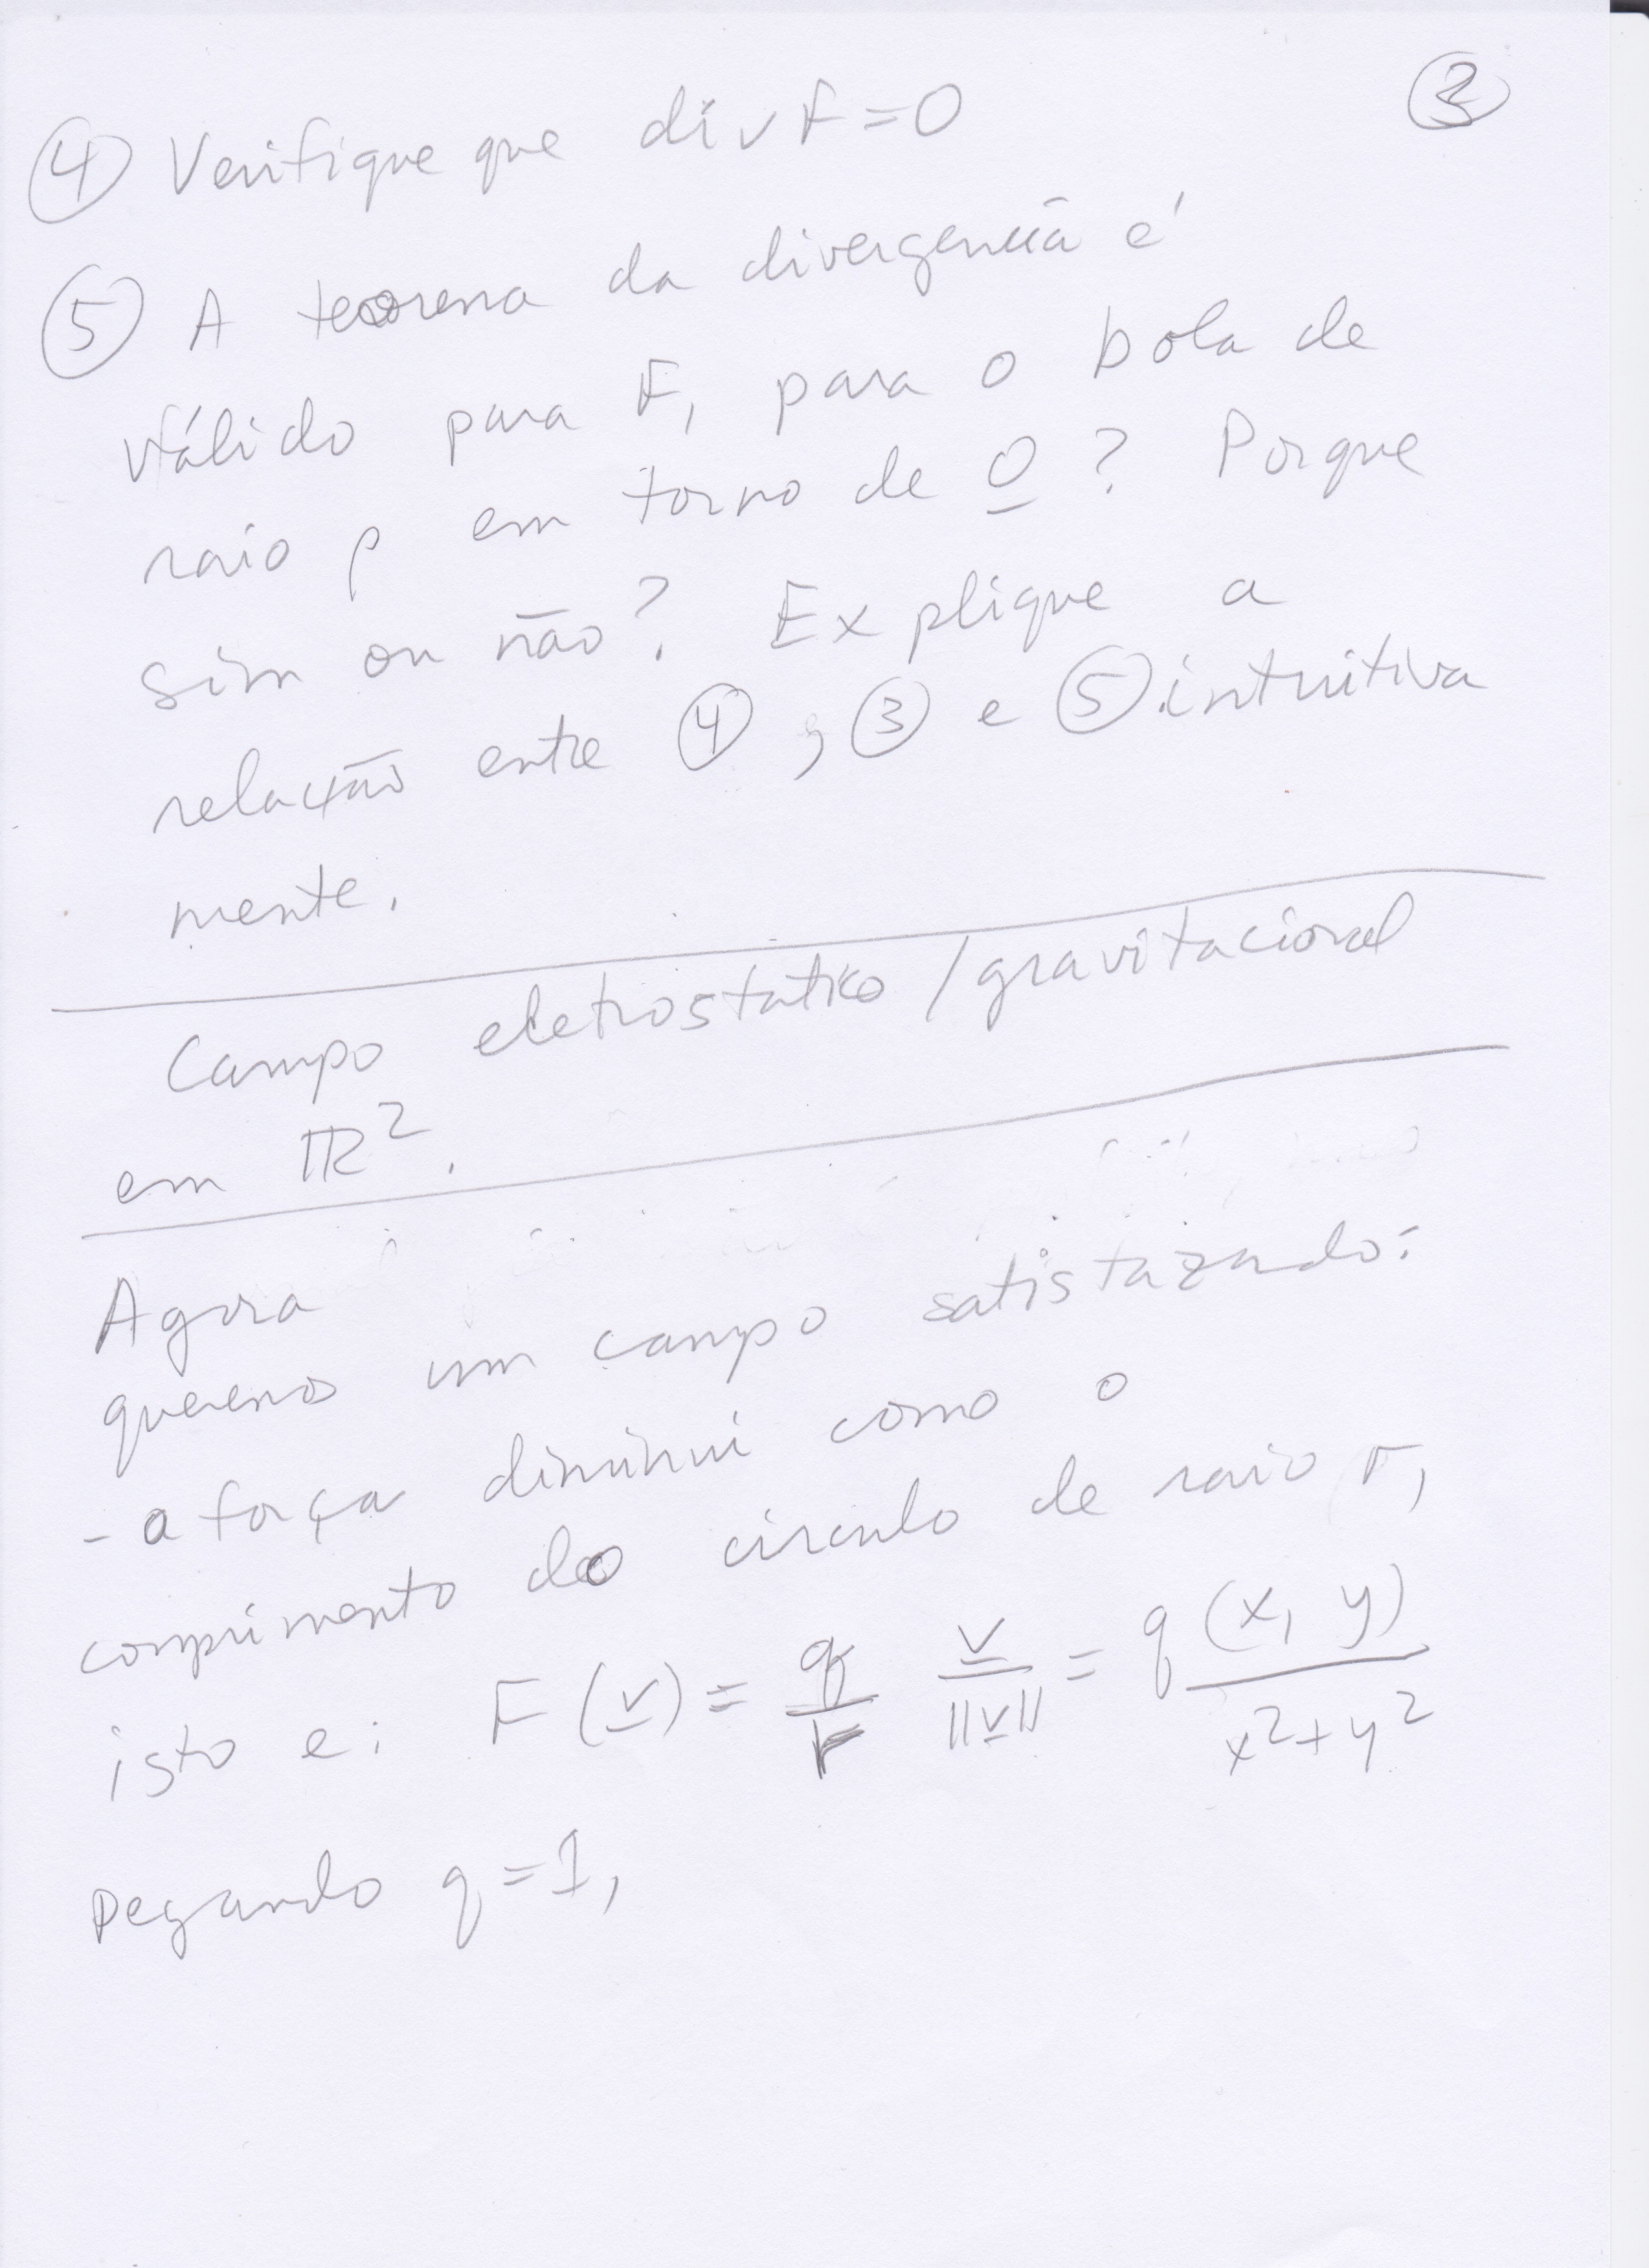 ③
④ Verifique que div F = 0
⑤ A teorema da divergencia é
válido para F, para o bola de
raio ρ em torno de 0? Porque
sim ou não? Explique a
relação entre ④, ③ e ⑤ intuitiva
mente.
Campo eletrostatico / gravitacional
em ℝ².
Agora
queremos um campo satisfazando:
- a força diminui como o
comprimento do circulo de raio r,
isto e: F(v) = q/r v/||v|| = q (x, y)/x²+y²
Pegando q = 1,